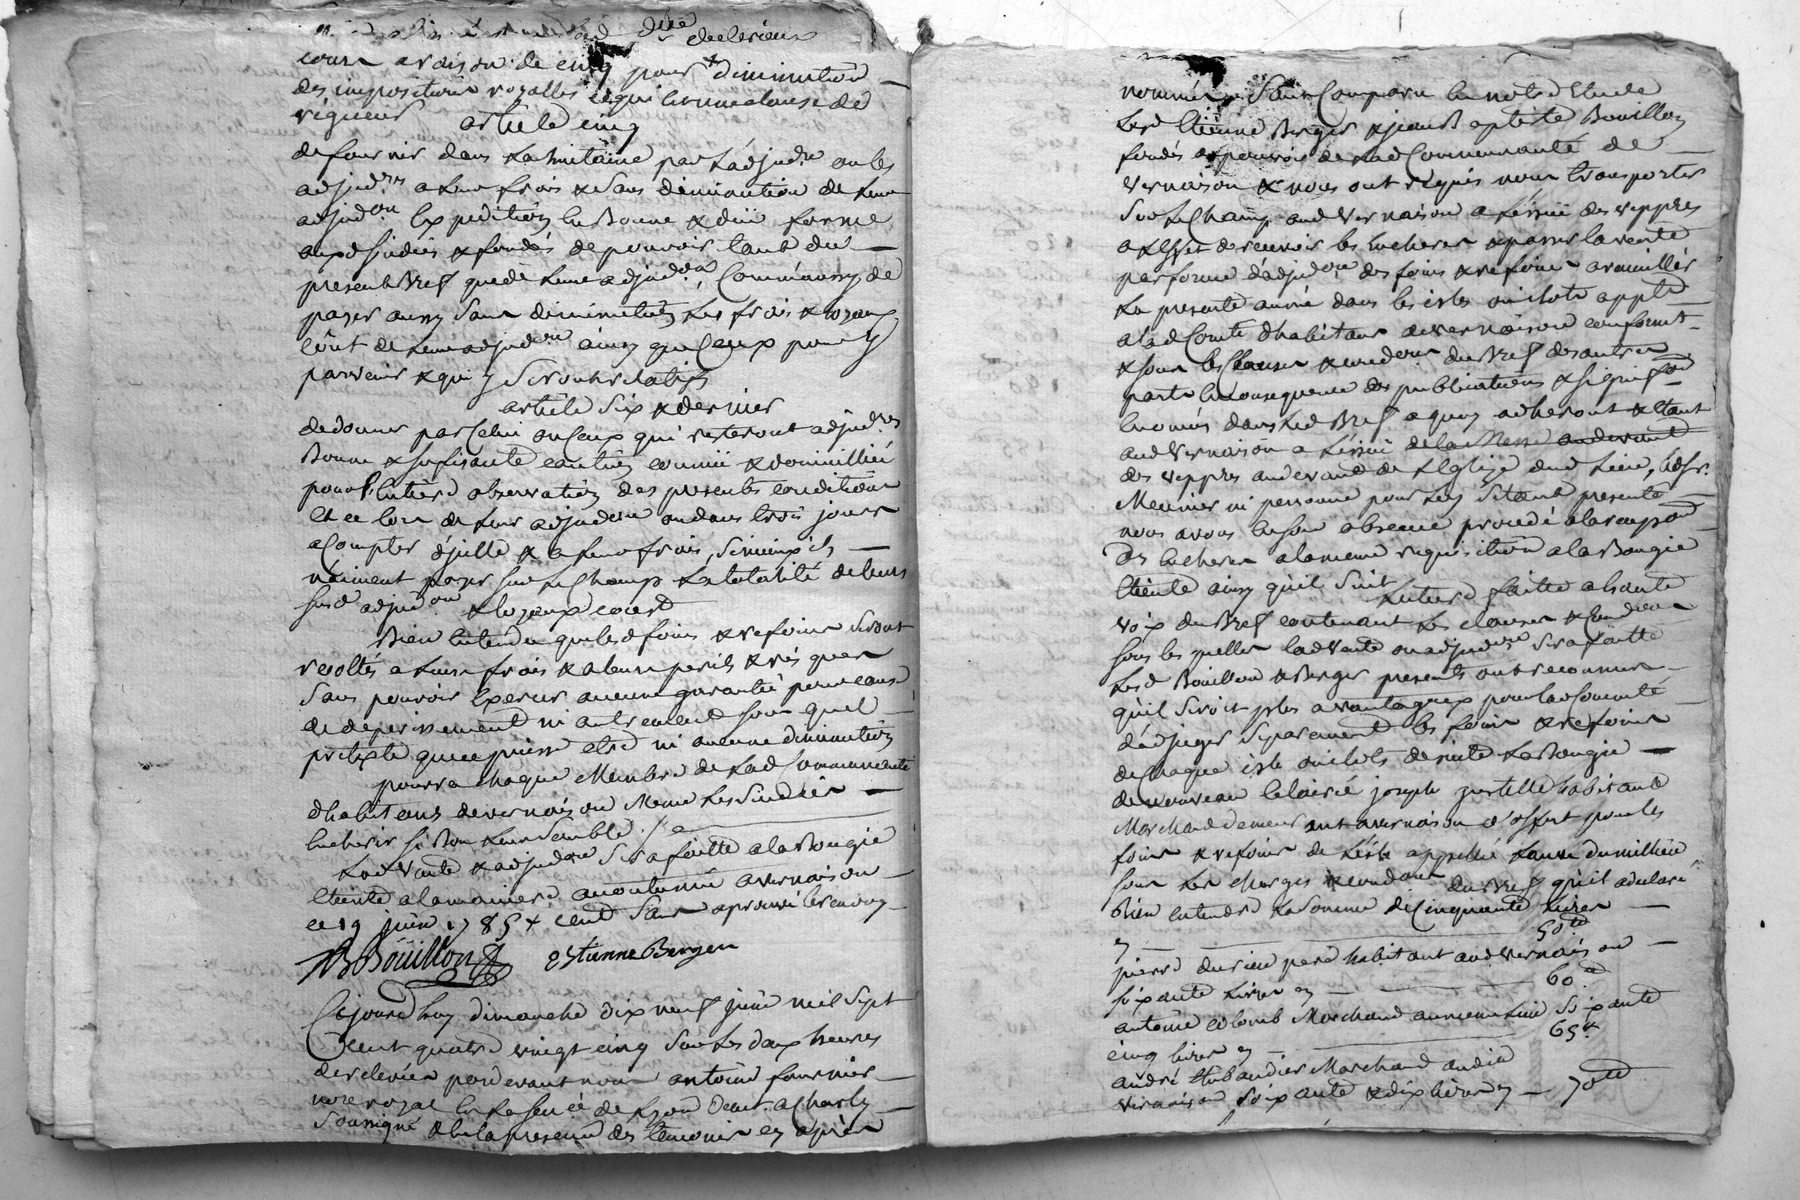 cours a raison de cinq pour % diminution
des impositions royalles ce qui est une clause de
rigueur article cinq
de fournir dans la huitaine par l'adjudre ou les
adjudres a leur frais & sans diminution de leur
adjudon Expedition En Bonne & düe forme
auxd sindics & fondés de pouvoir tant du
present Bref que de leur adjudon, Comm'aussy de
payer aussy sans diminution Les frais & loyaux
coût de leur adjudon ainsy que Ceux pour y
parvenir & qui y seront relatifs
article Six & dernier
de donner par Celui ou Ceux qui resteront adjudres
Bonne & sufisante caution connüe & domicilliée
pour l'entiere observation des presentes conditions
Et ce lors de leur adjudon ou dans trois jours
a Compter d'jcelle & a leur frais, si mieux ils
n'aiment payer sur le Champ La totalité de leurs
susd adjudon & loyaux coust
Bien Entendu que lesd foins & refoins seront
recoltés a leurs frais & a leurs perils & risques
Sans pouvoir Exercer aucune garantie pour cause
de deperissement ni autrement sous quel
pretexte que ce puisse etre ni aucune diminution
pourra Chaque Membre de Lad Communauté
d'habitans de vernaison Meme Les Sindics
Encherir si Bon leur semble
Lad vente & adjudon sera faitte a la Bougie
Eteinte a la maniere accoutumée a vernaison
ce 19 juin 1785 & cent Sans aprouvé
JB Boüillon Estienne Berger
Cejourd'huy dimanche dix neuf juin mil sept
Cent quatre vingt cinq sur Les deux heures
de relevée pardevant nous antoine fournier
nore royal En La senée de Lyon demt a Charly
Soussigné & En la presence des temoins cy après
nommés Sont Comparu En notre Etude
Lesd Etienne Berger & jean Baptiste Bouillon
fondés de pouvoir de Lad Communauté de
vernaison & nous ont requis nous transporter
Sur Le Champ aud vernaison a L'issüe des veppres
a L'effet de recevoir les Encheres & passer la vente
par forme d'adjudon des foins & refoins a recuillir
La presente année dans les isles ou ilots appts
a lad Comté d'habitans de vernaison conformt
& sous les Clauses & condons du Bref des autres
parts En Consequence des publications & signifon
Enoncés dans led Bref a quoy adherant & Etant
aud vernaison a L'issüe de la Messe au devant
des veppres au devant de L'Eglise dud Lieu, led Sr
Meunier ni personne pour Luy n'Etant presente
nous avons En son absence procedé a la reception
des Encheres a la meme requisition a la Bougie
Eteinte ainsy qu'il suit Lecture faitte a haute
voix du Bref contenant Les clauses & Condons
sous les quelles lad vente ou adjudon sera faitte
Lesd Bouillon & Berger presents ont reconnus
qu'il seroit plus avantageux pour lad Comté
d'adjuger separement les foins & refoins
de Chaque isle ou ilots de suite La Bougie
de nouveau Eclairée joseph habitant
Marchand demeurant a vernaison a offert pour les
foins & refoins de L'isle appellée Laune du millieu
sous Les charges & condons du Bref qu'il a declaré
Bien entendre La Somme de Cinquante Livres
cy 50tt
pierre durieu pere habitant aud vernaison
soixante Livres cy 60tt
antoine colomb Marchand au meme Lieu soixante
cinq livres cy 65tt
andré thibaudier Marchand audit
vernaison soixante & dix livres cy 70tt